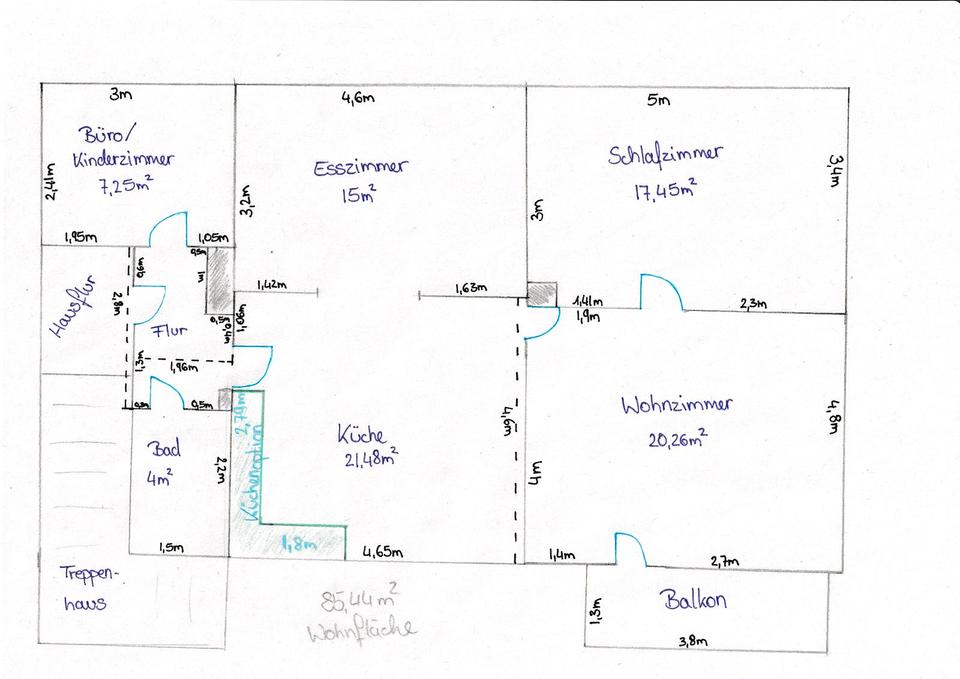 3m
4,6m
5m
Büro/
Kinderzimmer
7,25m²
2,41m
1,95m
1,05m
Esszimmer
15m²
3,2m
3m
Schlafzimmer
17,45m²
3,4m
1,42m
1,63m
1,41m
1,9m
2,3m
Hausflur
2,8m
0,6m
0,5m
1m
0,5m
0,4m
1,06m
Flur
1,3m
1,96m
0,5m
Bad
4m²
2,2m
1,5m
2,79m
Küchenoption
1,8m
Küche
21,48m²
4,6m
4,65m
Wohnzimmer
20,26m²
4m
4,8m
1,4m
2,7m
Treppen-
haus
85,44m²
Wohnfläche
Balkon
1,3m
3,8m